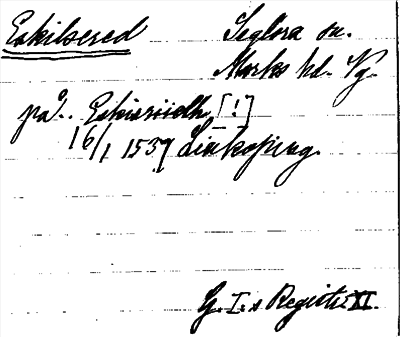 Eskilsered Seglora sn.
Marks hd. Vg.
på.. Eskiæriidh [!]
16/1 1537 Linköping.
G. I:s Registr. XI.